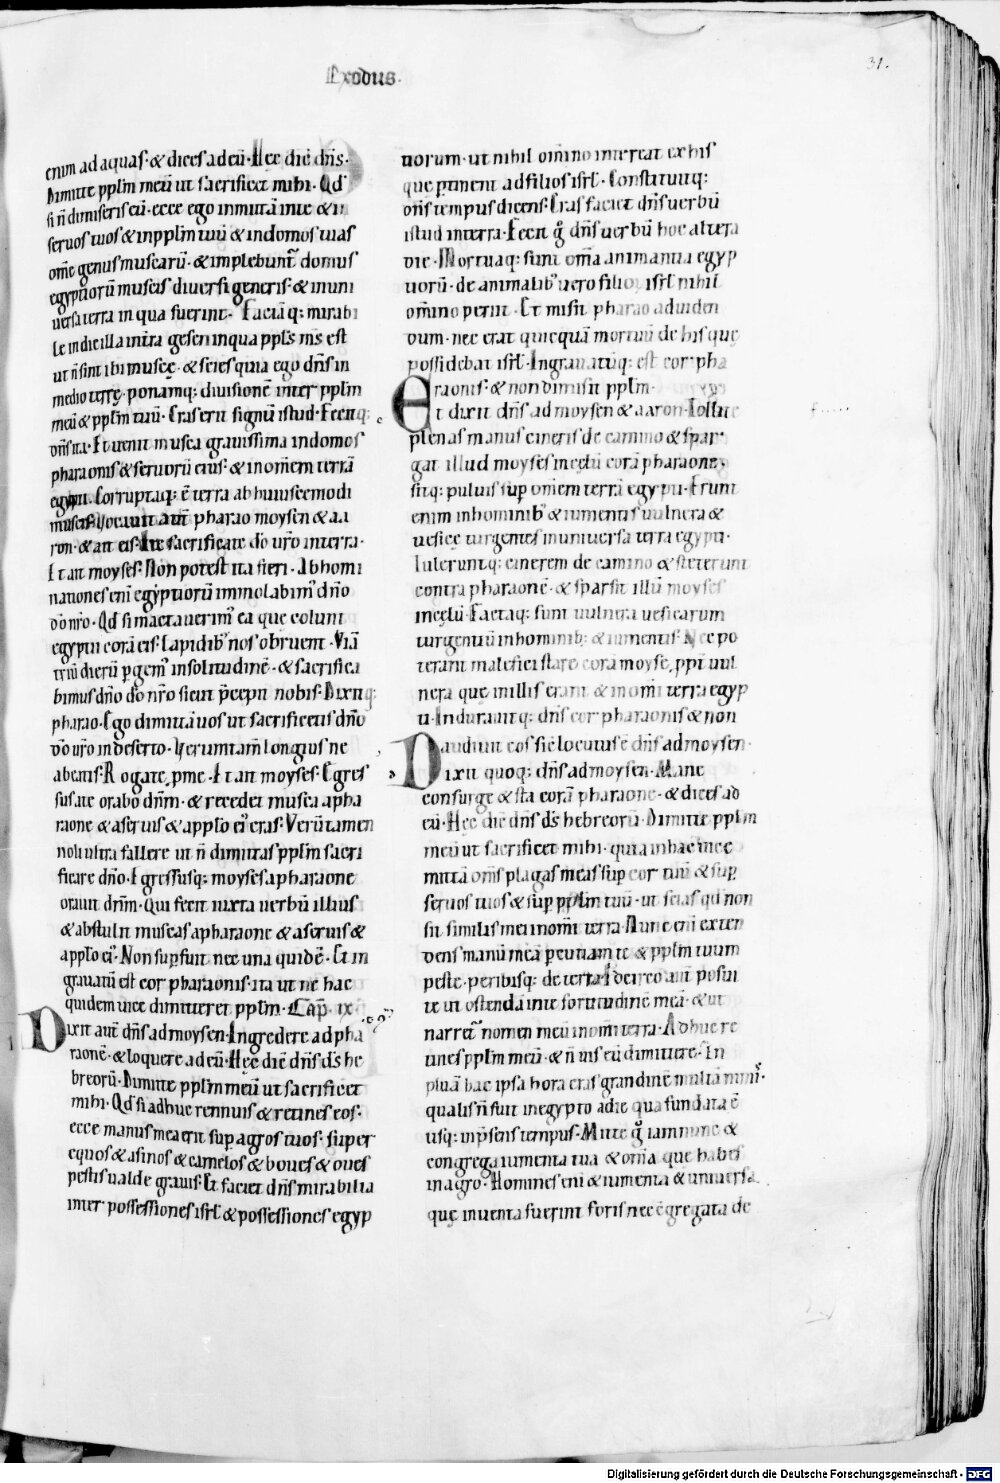 Exodus.
31.
enim ad aquas· & dices ad eū· Hęc dic̄ dn̄s·
Dimitte pplm̄ meū ut sacrificet mihi· Qđ
si n̄ dimiseris eū· ecce ego inmittā in te & in
seruos tuos & in pplm̄ tuū & in domos tuas
om̄e genus muscarū· & implebunt̃ domus
egyptiorū muscis diuersi generis· & in uni
uersa terra in qua fuerint· Faciā q; mirabi
le in die illa in terra gesen in qua ppls̄ m̄s est
ut n̄ sint ibi muscę· & scies quia ego dn̄s in
medio terrę· ponamq; diuisionē inter pplm̄
meū & pplm̄ tuū· Cras erit signū istud· Fecitq;
dn̄s ita· Et uenit musca grauissima in domos
pharaonis & seruorū eius· & in om̄em terrā
egypti· Corruptaq; ē terra ab huiuscemodi
muscis· Vocauit aut̄ pharao moysen & aa
ron· & ait eis· Ite sacrificate dō ur̄o in terra·
Et ait moyses· Non potest ita fieri· Abhomi
nationes eni egyptiorū immolabim' dn̄o
dō nr̄o· Qđ si mactauerim' ea que colunt
egyptii corā eis· lapidib' nos obruent· Viā
triū dierū p̲gem' in solitudinē· & sacrifica
bimus dn̄o dō nr̄o sicut p̄cepit nobis· Dixitq;
pharao· Ego dimittā uos ut sacrificetis dn̄o
dō ur̄o in deserto· Verumtam̄ longius ne
abeatis· Rogate p̲ me· Et ait moyses· Egres
sus a te orabo dn̄m· & recedet musca a pha
raone & a seruis & a pplo ei' cras· Verūtamen
noli ultra fallere ut n̄ dimittas pplm̄ sacri
ficare dn̄o· Egressusq; moyses a pharaone
orauit dn̄m· Qui fecit iuxta uerbū illius
& abstulit muscas a pharaone & a seruis &
a pplo ei'· Non sup̲fuit nec una quidē· Et in
grauatū est cor pharaonis· ita ut ne hac
quidem uice dimitteret pplm̄· Cap̄. ix
Dixit aut̄ dn̄s ad moysen· Ingredere ad pha
raonē· & loquere ad eū· Hęc dic̄ dn̄s ds̄ he
breorū· Dimitte pplm̄ meū ut sacrificet
mihi· Qđ si adhuc rennuis & retines eos·
ecce manus mea erit sup̲ agros tuos· super
equos & asinos & camelos & boues & oues
pestis ualde grauis· Et faciet dn̄s mirabilia
inter possessiones isrl̄ & possessiones egyp
tiorum· ut nihil om̄ino intereat ex his
quę p̲tinent ad filios isrl̄· Constituitq;
dn̄s tempus dicens· Cras faciet dn̄s uerbū
istud in terra· Fecit g̊ dn̄s uerbū hoc altera
die· Mortuaq; sunt om̄a animantia egyp
tiorū· de animalib' uero filioꝝ isrl̄ nihil
om̄ino periit· Et misit pharao ad uiden
dum· nec erat quicquā mortuū de his quę
possidebat isrl̄· Ingrauatūq; est cor pha
raonis· & non dimisit pplm̄·
Et dixit dn̄s ad moysen & aaron· Tollite
plenas manus cineris de camino & spar
gat illud moyses in cęlū corā pharaone·
sitq; puluis sup̲ om̄em terrā egypti· Erunt
enim in hominib' & iumentis uulnera &
uesicę turgentes in uniuersa terra egypti·
Tuleruntq; cinerem de camino & steterunt
contra pharaonē· & sparsit illū moyses
in cęlū· Factaq; sunt uulnera uesicarum
turgentiū in hominib; & iumentis· Nec po
terant malefici stare corā moyse p̲pt̄ uul
nera quę in illis erant & in om̄i terra egyp
ti· Indurauitq; dn̄s cor pharaonis & non
audiuit eos sic locutus ē dn̄s ad moysen·
Dixit quoq; dn̄s ad moysen· Mane
consurge & sta corā pharaone· & dices ad
eū· Hęc dic̄ dn̄s ds̄ hebreorū· Dimitte pplm̄
meū ut sacrificet mihi· quia in hac uice
mittā om̄s plagas meas sup̲ cor tuū & sup̲
seruos tuos & sup̲ pplm̄ tuū· ut scias qđ non
sit similis mei in om̄i terra· Nunc eni exten
dens manū meā p̲cutiam te & pplm̄ tuum
peste· peribisq; de terra· Idcirco aut̄ posui
te ut ostendā in te fortitudinē meā· & ut
narret̃ nomen meū in om̄i terra· Adhuc re
tines pplm̄ meū· & n̄ uis eū dimittere· En
pluā hac ipsa hora cras grandinē multā nimis·
qualis n̄ fuit in egypto a die qua fundata ē
usq; in p̄sens tempus· Mitte g̊ iam nunc &
congrega iumenta tua & om̄ia quę habes
in agro· Homines eni & iumenta & uniuersa
quę inuenta fuerint foris nec c̄gregata de
Digitalisierung gefördert durch die Deutsche Forschungsgemeinschaft - DFG